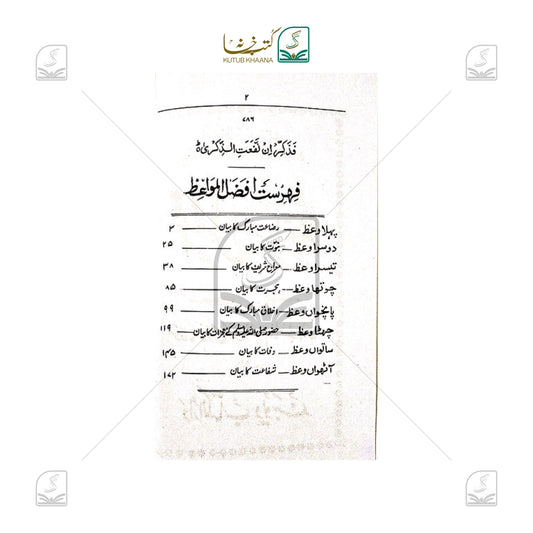 کتب خانہ
KUTUB KHAANA
۲
۷۸۶
فَذَكِّرْ اِنْ نَّفَعَتِ الذِّكْرٰى ؕ
فہرست افضل المواعظ
پہلا وعظ — رضاعت مبارک کا بیان — ۳
دوسرا وعظ — نبوت کا بیان — ۲۵
تیسرا وعظ — معراج شریف کا بیان — ۳۸
چوتھا وعظ — ہجرت کا بیان — ۸۵
پانچواں وعظ — اخلاق مبارک کا بیان — ۹۹
چھٹا وعظ — حضور صلی اللہ علیہ وسلم کے معجزات کا بیان — ۱۱۹
ساتواں وعظ — وفات کا بیان — ۱۴۵
آٹھواں وعظ — شفاعت کا بیان — ۱۷۲